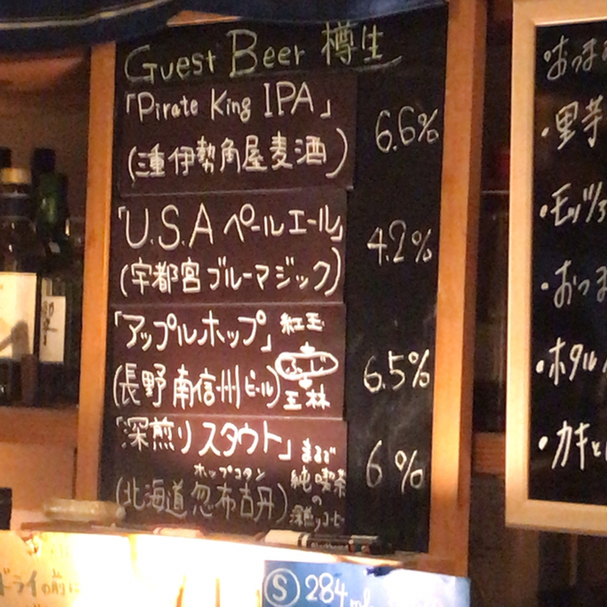 Guest Beer 樽生
「Pirate King IPA」
6.6%
(三重 伊勢角屋麦酒)
「U.S.A ペールエール」
4.2%
(宇都宮 ブルーマジック)
「アップルホップ」
紅玉
+
ふじ
+
王林
6.5%
(長野 南信州ビール)
「深煎りスタウト」
まるで
純喫茶
の
深煎りコーヒー
6%
ホップコタン
(北海道 忽布古丹)
おつま
・里芋
・モッツァ
・おつま
・ホタル
・カキと
ドライの前に
Ⓢ 284ml